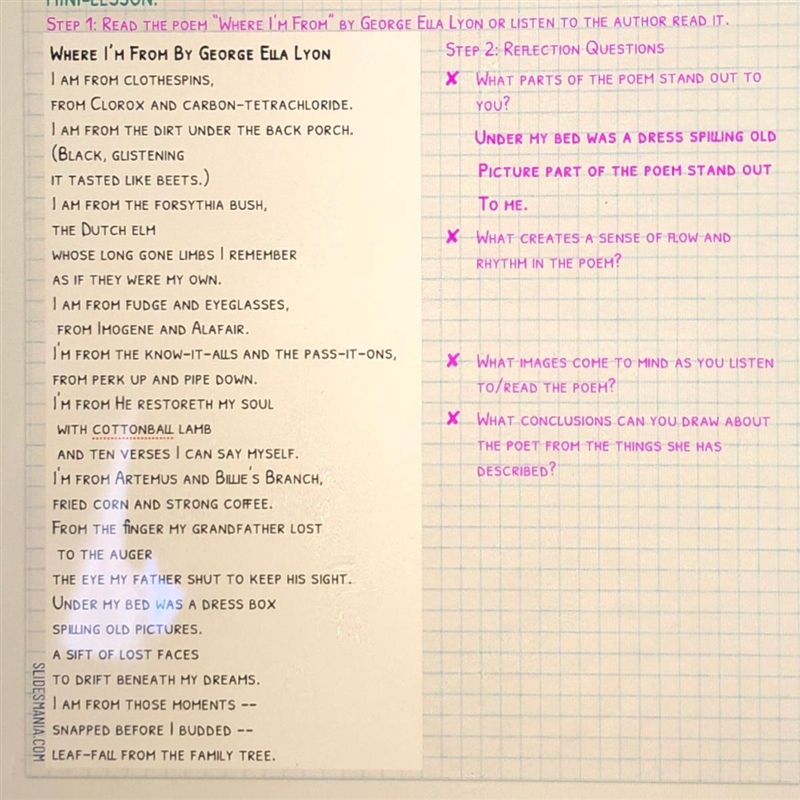 MINI-LESSON:
STEP 1: READ THE POEM "WHERE I'M FROM" BY GEORGE ELLA LYON OR LISTEN TO THE AUTHOR READ IT.
WHERE I'M FROM BY GEORGE ELLA LYON
I AM FROM CLOTHESPINS,
FROM CLOROX AND CARBON-TETRACHLORIDE.
I AM FROM THE DIRT UNDER THE BACK PORCH.
(BLACK, GLISTENING
IT TASTED LIKE BEETS.)
I AM FROM THE FORSYTHIA BUSH,
THE DUTCH ELM
WHOSE LONG GONE LIMBS I REMEMBER
AS IF THEY WERE MY OWN.
I AM FROM FUDGE AND EYEGLASSES,
FROM IMOGENE AND ALAFAIR.
I'M FROM THE KNOW-IT-ALLS AND THE PASS-IT-ONS,
FROM PERK UP AND PIPE DOWN.
I'M FROM HE RESTORETH MY SOUL
WITH COTTONBALL LAMB
AND TEN VERSES I CAN SAY MYSELF.
I'M FROM ARTEMUS AND BILLIE'S BRANCH,
FRIED CORN AND STRONG COFFEE.
FROM THE FINGER MY GRANDFATHER LOST
TO THE AUGER
THE EYE MY FATHER SHUT TO KEEP HIS SIGHT.
UNDER MY BED WAS A DRESS BOX
SPILLING OLD PICTURES.
A SIFT OF LOST FACES
TO DRIFT BENEATH MY DREAMS.
I AM FROM THOSE MOMENTS --
SNAPPED BEFORE I BUDDED --
LEAF-FALL FROM THE FAMILY TREE.
STEP 2: REFLECTION QUESTIONS
✘ WHAT PARTS OF THE POEM STAND OUT TO
YOU?
UNDER MY BED WAS A DRESS SPILLING OLD
PICTURE PART OF THE POEM STAND OUT
TO ME.
✘ WHAT CREATES A SENSE OF FLOW AND
RHYTHM IN THE POEM?
✘ WHAT IMAGES COME TO MIND AS YOU LISTEN
TO/READ THE POEM?
✘ WHAT CONCLUSIONS CAN YOU DRAW ABOUT
THE POET FROM THE THINGS SHE HAS
DESCRIBED?
SLIDESMANIA.COM